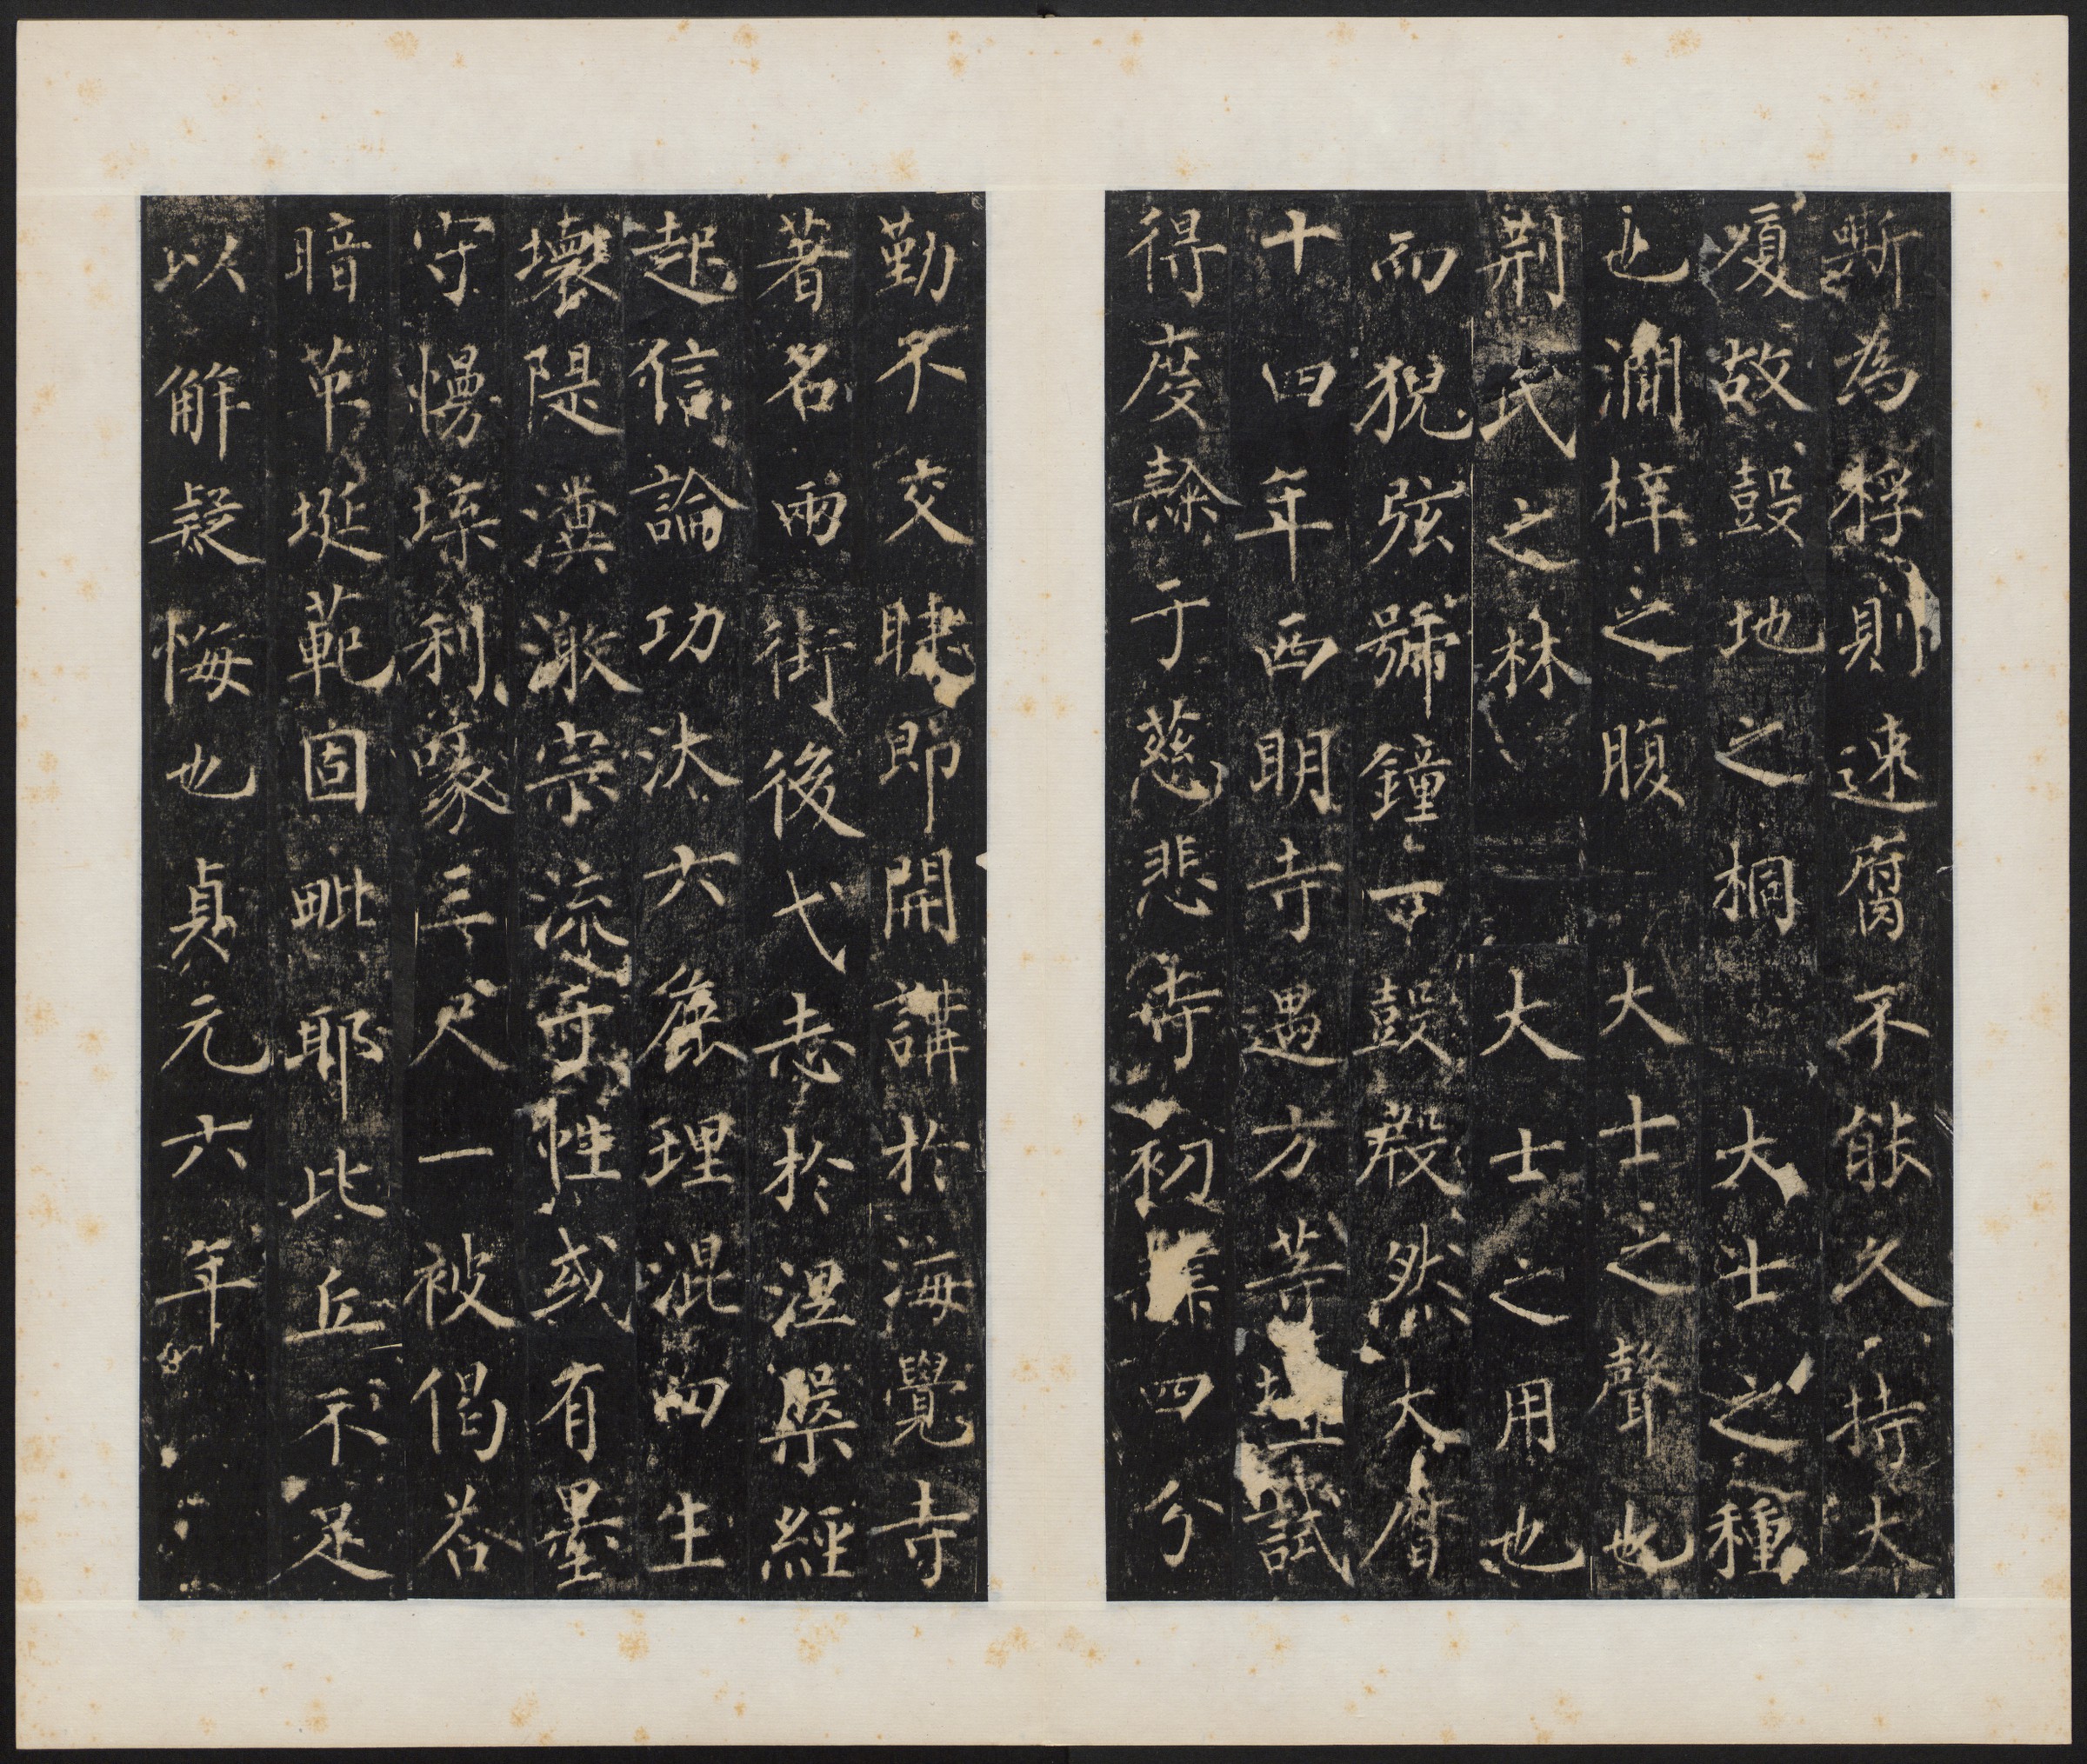 嘶為桴則速腐不能久持大
嗄故鼓地之桐大士之種
也澗梓之腹大士之聲也
荆氏之林大士之用也
而猊弦號鐘可鼓殷然大曆
十四年西明寺遇方等壇試
得度隸于慈悲寺初業四分
勤不交睫即開講於海覺寺
著名兩街後弋志於涅槃經
起信論功汰六麁理混四生
壞隄瀵潡崇流守性或有墨
守慢埰利喙三尺一被偈荅
暗革埏範固毗耶比丘不足
以解疑悔也貞元六年